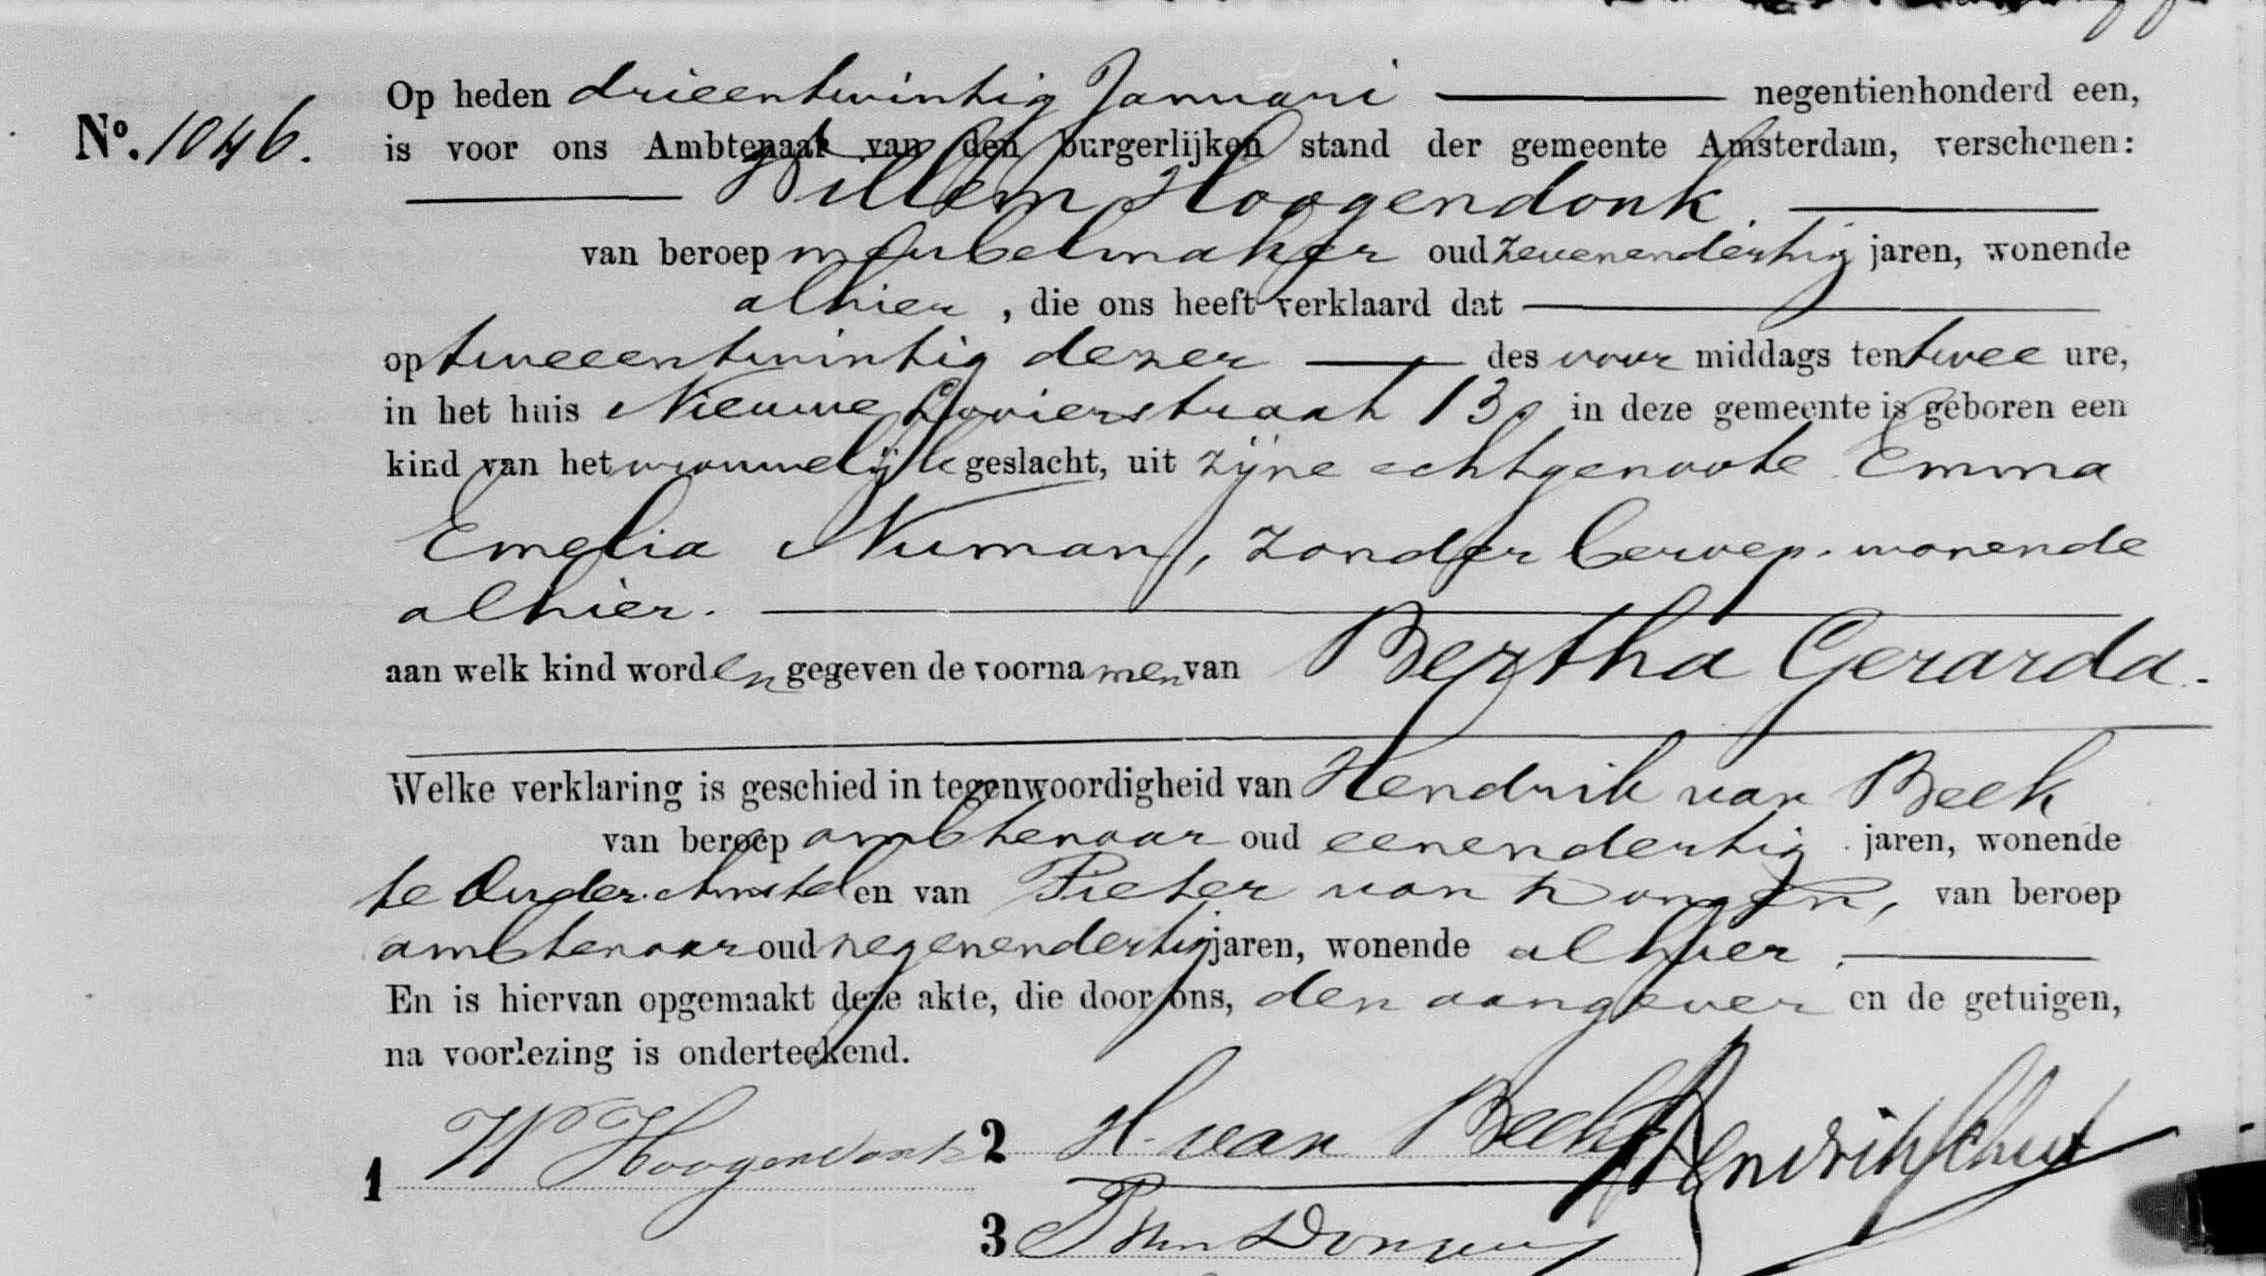 Op heden drieentwintig Januari negentienhonderd een,
No. 1046. is voor ons Ambtenaar van den burgerlijken stand der gemeente Amsterdam, verschenen:
Willem Hoogendonk.
van beroep meubelmaker oud zevenendertig jaren, wonende
alhier, die ons heeft verklaard dat
op tweeentwintig dezer des voor middags ten twee ure,
in het huis Nieuwe Looierstraat 130 in deze gemeente is geboren een
kind van het vrouwelijk geslacht, uit zijne echtgenoote Emma
Emelia Numan, zonder beroep. wonende
alhier.
aan welk kind worden gegeven de voornamen van Bertha Gerarda.
Welke verklaring is geschied in tegenwoordigheid van Hendrik van Beek
van beroep ambtenaar oud eenendertig jaren, wonende
te Ouder-Amstel en van Pieter van Dongen, van beroep
ambtenaar oud negenendertig jaren, wonende alhier.
En is hiervan opgemaakt deze akte, die door ons, den aangever en de getuigen,
na voorlezing is onderteekend.
1 W Hoogendonk 2 H. van Beek Hendrik Schut
3 P van Dongen